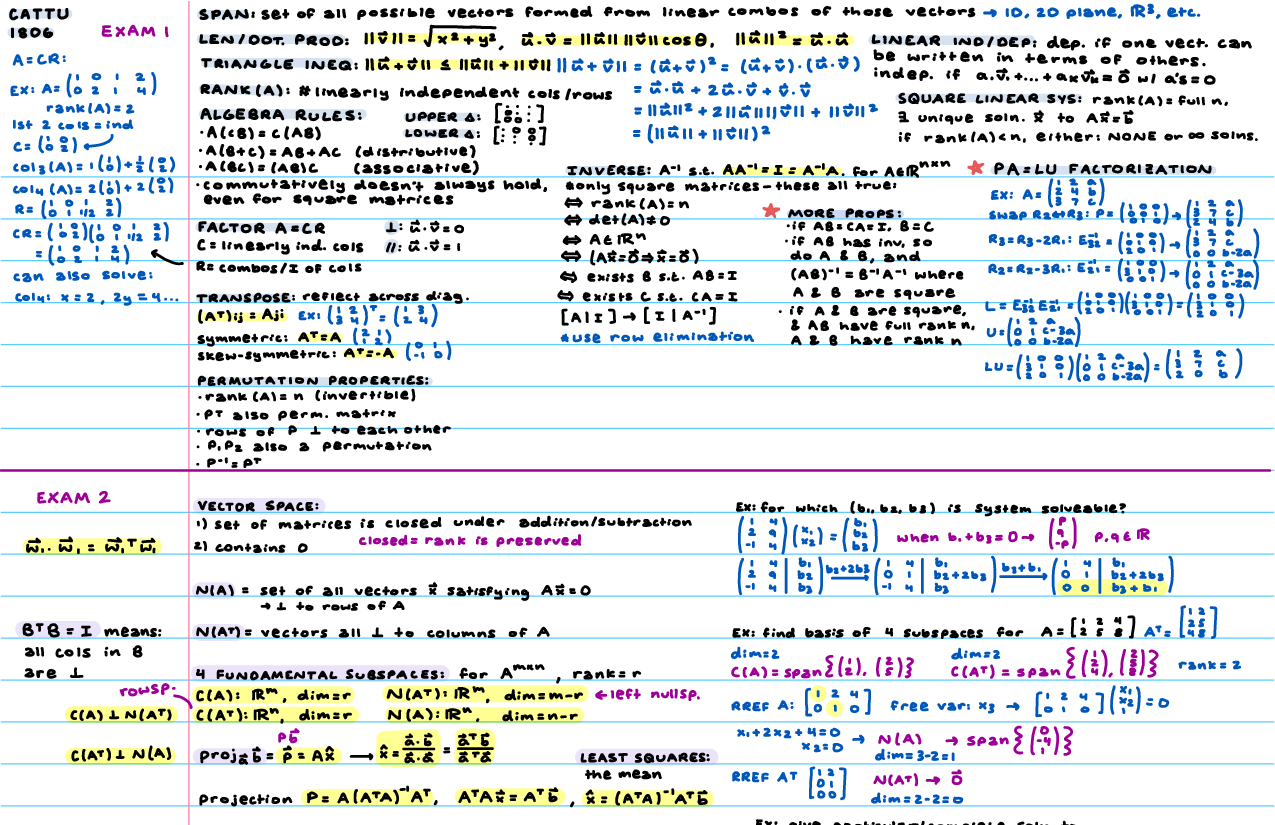 CATTU
1806
EXAM 1
A=CR:
EX: A= (1 0 1 2
0 2 1 4)
rank(A)=2
1st 2 cols = ind
C= (1 0
0 2)
col3(A) = 1(1 0) + 1/2 (0 2)
col4(A) = 2(1 0) + 2(0 2)
R= (1 0 1 2
0 1 1/2 2)
CR= (1 0
0 2)(1 0 1 2
0 1 1/2 2)
= (1 0 1 2
0 2 1 4)
can also solve:
col4: x=2, 2y=4...
SPAN: set of all possible vectors formed from linear combos of those vectors → 1D, 2D plane, ℝ³, etc.
LEN/DOT. PROD: ||v⃗|| = √x²+y², u⃗·v⃗ = ||u⃗|| ||v⃗|| cosθ, ||u⃗||² = u⃗·u⃗
TRIANGLE INEQ: ||u⃗+v⃗|| ≤ ||u⃗||+||v⃗|| ||u⃗+v⃗|| = (u⃗+v⃗)² = (u⃗+v⃗)·(u⃗·v⃗)
= u⃗·u⃗ + 2u⃗·v⃗ + v⃗·v⃗
= ||u⃗||² + 2||u⃗||||v⃗|| + ||v⃗||²
= (||u⃗|| + ||v⃗||)²
RANK(A): # linearly independent cols/rows
ALGEBRA RULES:
·A(cB) = c(AB)
·A(B+C) = AB+AC (distributive)
·A(BC) = (AB)C (associative)
·commutatively doesn't always hold,
even for square matrices
UPPER Δ:
LOWER Δ:
LINEAR IND/DEP: dep. if one vect. can
be written in terms of others.
indep. if a₁v⃗₁+...+aₖv⃗ₖ=0⃗ w/ a's=0
SQUARE LINEAR SYS: rank(A)=full n,
∃ unique soln. x⃗ to Ax⃗=b⃗
if rank(A)<n, either: NONE or ∞ solns.
FACTOR A=CR
C= linearly ind. cols
R= combos/I of cols
⊥: u⃗·v⃗=0
//: u⃗·v⃗=1
TRANSPOSE: reflect across diag.
(Aᵀ)ij = Aji EX: (1 2
3 4)ᵀ = (1 3
2 4)
symmetric: Aᵀ=A (2 1
1 2)
skew-symmetric: Aᵀ=-A (0 1
-1 0)
PERMUTATION PROPERTIES:
·rank(A)=n (invertible)
·Pᵀ also perm. matrix
·rows of P ⊥ to each other
·P₁P₂ also a permutation
·P⁻¹=Pᵀ
INVERSE: A⁻¹ s.t. AA⁻¹=I=A⁻¹A. for A∈ℝⁿˣⁿ
*only square matrices – these all true:
⇔ rank(A)=n
⇔ det(A)≠0
⇔ A∈ℝⁿ
⇔ (Ax⃗=0⃗⇒x⃗=0⃗)
⇔ exists B s.t. AB=I
⇔ exists C s.t. CA=I
[A|I] → [I|A⁻¹]
*use row elimination
MORE PROPS:
·if AB=CA=I, B=C
·if AB has inv, so
do A & B, and
(AB)⁻¹=B⁻¹A⁻¹ where
A & B are square
·if A & B are square,
& AB have full rank n,
A & B have rank n
PA=LU FACTORIZATION
EX: A= (1 2 a
2 4 b
3 7 c)
SWAP R2↔R3: P= (1 0 0
0 0 1
0 1 0) → (1 2 a
3 7 c
2 4 b)
R3=R3-2R1: E31⁻¹= (1 0 0
0 1 0
2 0 1) → (1 2 a
3 7 c
0 0 b-2a)
R2=R2-3R1: E21⁻¹= (1 0 0
3 1 0
0 0 1) → (1 2 a
0 1 c-3a
0 0 b-2a)
L= (1 0 0
0 1 0
2 0 1)(1 0 0
3 1 0
0 0 1) = (1 0 0
3 1 0
2 0 1)
U= (1 2 a
0 1 c-3a
0 0 b-2a)
LU= (1 0 0
3 1 0
2 0 1)(1 2 a
0 1 c-3a
0 0 b-2a) = (1 2 a
3 7 c
2 0 b)
EXAM 2
w⃗₁·w⃗₁ = w⃗₁ᵀw⃗₁
BᵀB = I means:
all cols in B
are ⊥
rowsp.
C(A)⊥N(Aᵀ)
C(Aᵀ)⊥N(A)
VECTOR SPACE:
1) set of matrices is closed under addition/subtraction
2) contains 0
closed = rank is preserved
N(A) = set of all vectors x⃗ satisfying Ax⃗=0
→ ⊥ to rows of A
N(Aᵀ) = vectors all ⊥ to columns of A
4 FUNDAMENTAL SUBSPACES: for Aᵐˣⁿ, rank=r
C(A): ℝᵐ, dim=r N(Aᵀ): ℝᵐ, dim=m-r ← left nullsp.
C(Aᵀ): ℝⁿ, dim=r N(A): ℝⁿ, dim=n-r
Pb⃗
proj_a⃗ b⃗ = p⃗ = Ax̂ → x̂ = a⃗·b⃗/a⃗·a⃗ = a⃗ᵀb⃗/a⃗ᵀa⃗
LEAST SQUARES:
the mean
projection P = A(AᵀA)⁻¹Aᵀ, AᵀAx⃗ = Aᵀb⃗, x̂ = (AᵀA)⁻¹Aᵀb⃗
Ex: for which (b₁, b₂, b₃) is system solveable?
(1 4
2 9
-1 4)(x₁
x₂) = (b₁
b₂
b₃) when b₁+b₃=0 → (p
q
-p) p,q∈ℝ
(1 4 | b₁
2 9 | b₂
-1 4 | b₃) b₂+2b₃ → (1 4 | b₁
0 1 | b₂+2b₃
-1 4 | b₃) b₃+b₁ → (1 4 | b₁
0 1 | b₂+2b₃
0 0 | b₃+b₁)
Ex: find basis of 4 subspaces for A= [1 2 4
2 5 8] Aᵀ= [1 2
2 5
4 8]
dim=2 dim=2
C(A)=span{(1 2), (2 5)} C(Aᵀ)=span{(1 2 4), (2 5 8)} rank=2
RREF A: [1 2 4
0 1 0] free var: x₃ → [1 2 4
0 1 0](x₁
x₂
1)=0
x₁+2x₂+4=0
x₂=0 → N(A) → span{(0 -4 1)}
dim=3-2=1
RREF AT [1 2
0 1
0 0] N(Aᵀ) → 0⃗
dim=2-2=0